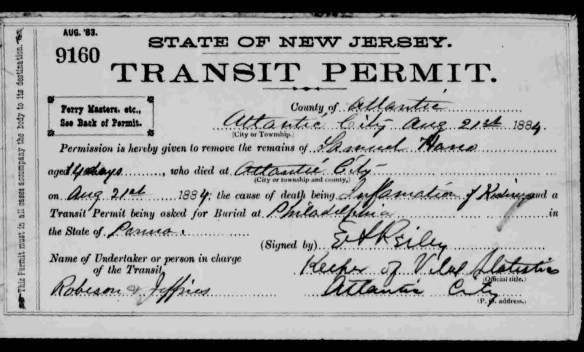 AUG. '83.
9160
STATE OF NEW JERSEY.
TRANSIT PERMIT.
Ferry Masters, etc.,
See Back of Permit.
County of Atlantic
Atlantic City Aug 21st 1884.
(City or Township.)
Permission is hereby given to remove the remains of Samuel
aged 14 days, who died at Atlantic City
(City or township and county.)
on Aug 21st 1884; the cause of death being Inflamation of Kidneys and a
Transit Permit being asked for Burial at Philadelphia in
the State of Penna.
(Signed by)
Name of Undertaker or person in charge
of the Transit,
Keeper of Vital Statistics
(Official title.)
Robeson & Jeffries
Atlantic City
(P. O. address.)
This Permit must in all cases accompany the body to its destination.